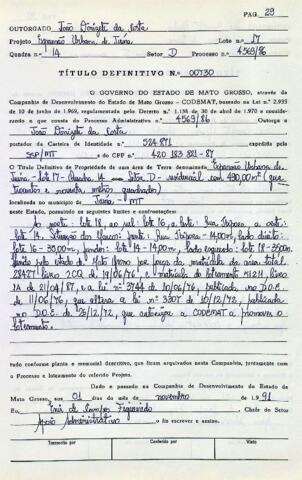 PAG. 23
OUTORGADO João Donizete da Costa
Projeto Expansão Urbana de Juina Lote n.º 17
Quadra n.º 14 Setor D Processo n.º 4569/86
TÍTULO DEFINITIVO N.º 00730
O GOVERNO DO ESTADO DE MATO GROSSO, através da
Companhia de Desenvolvimento do Estado de Mato Grosso - CODEMAT, baseado na Lei n.º 2.935
de 10 de junho de 1.969, regulamentada pelo Decreto n.º 1.138 de 30 de abril de 1.970 e considerando
o que consta do Processo Administrativo n.º 4569/86 Outorga a
João Donizete da Costa
portador da Carteira de Identidade n.º 524.871 expedida pela
SSP/MT e do CPF n.º 420 183 821-87
O Título Definitivo de Propriedade de uma área de Terra denominada Expansão Urbana de
Juina - lote 17 - Quadra 14 - Setor D - residencial com 490,00 m² (qua
trocentos e noventa metros quadrados)
localizado no município de Juina/MT
neste Estado, possuindo os seguintes limites e confrontações:
Ao norte: lote 18, ao sul: lote 16, a leste: Rua a oeste:
lote 14. frente: Rua - 14,00m, lado direito:
lote 16 - 35,00m, fundos: lote 14 - 14,00m, lado esquerdo: lote 18 - 35,00m
pelo estado de Mato Grosso por força da matrícula da área total
28427 livro 2CQ de 19/06/76, e matrícula do loteamento livro
1A de 21/04/87, e a lei nº 3744 de 10/06/76, publicada no D.O.E.
de 11/06/76, que altera a lei nº 3307 de 10/12/72, publicada
no D.O.E. de 25/12/72, que autoriza a CODEMAT a promover o
loteamento.
tudo conforme planta e memorial descritivo, que ficam arquivados nesta Companhia, juntamente com
o Processo e loteamento do referido Projeto.
Dado e passado na Companhia de Desenvolvimento do Estado de
Mato Grosso, aos 01 dias do mês de novembro de 1.991
Eu, de Campos Figueiredo Chefe do Setor
Apoio Administrativo o fiz escrever e assino.
Transcrito por Conferido por Visto